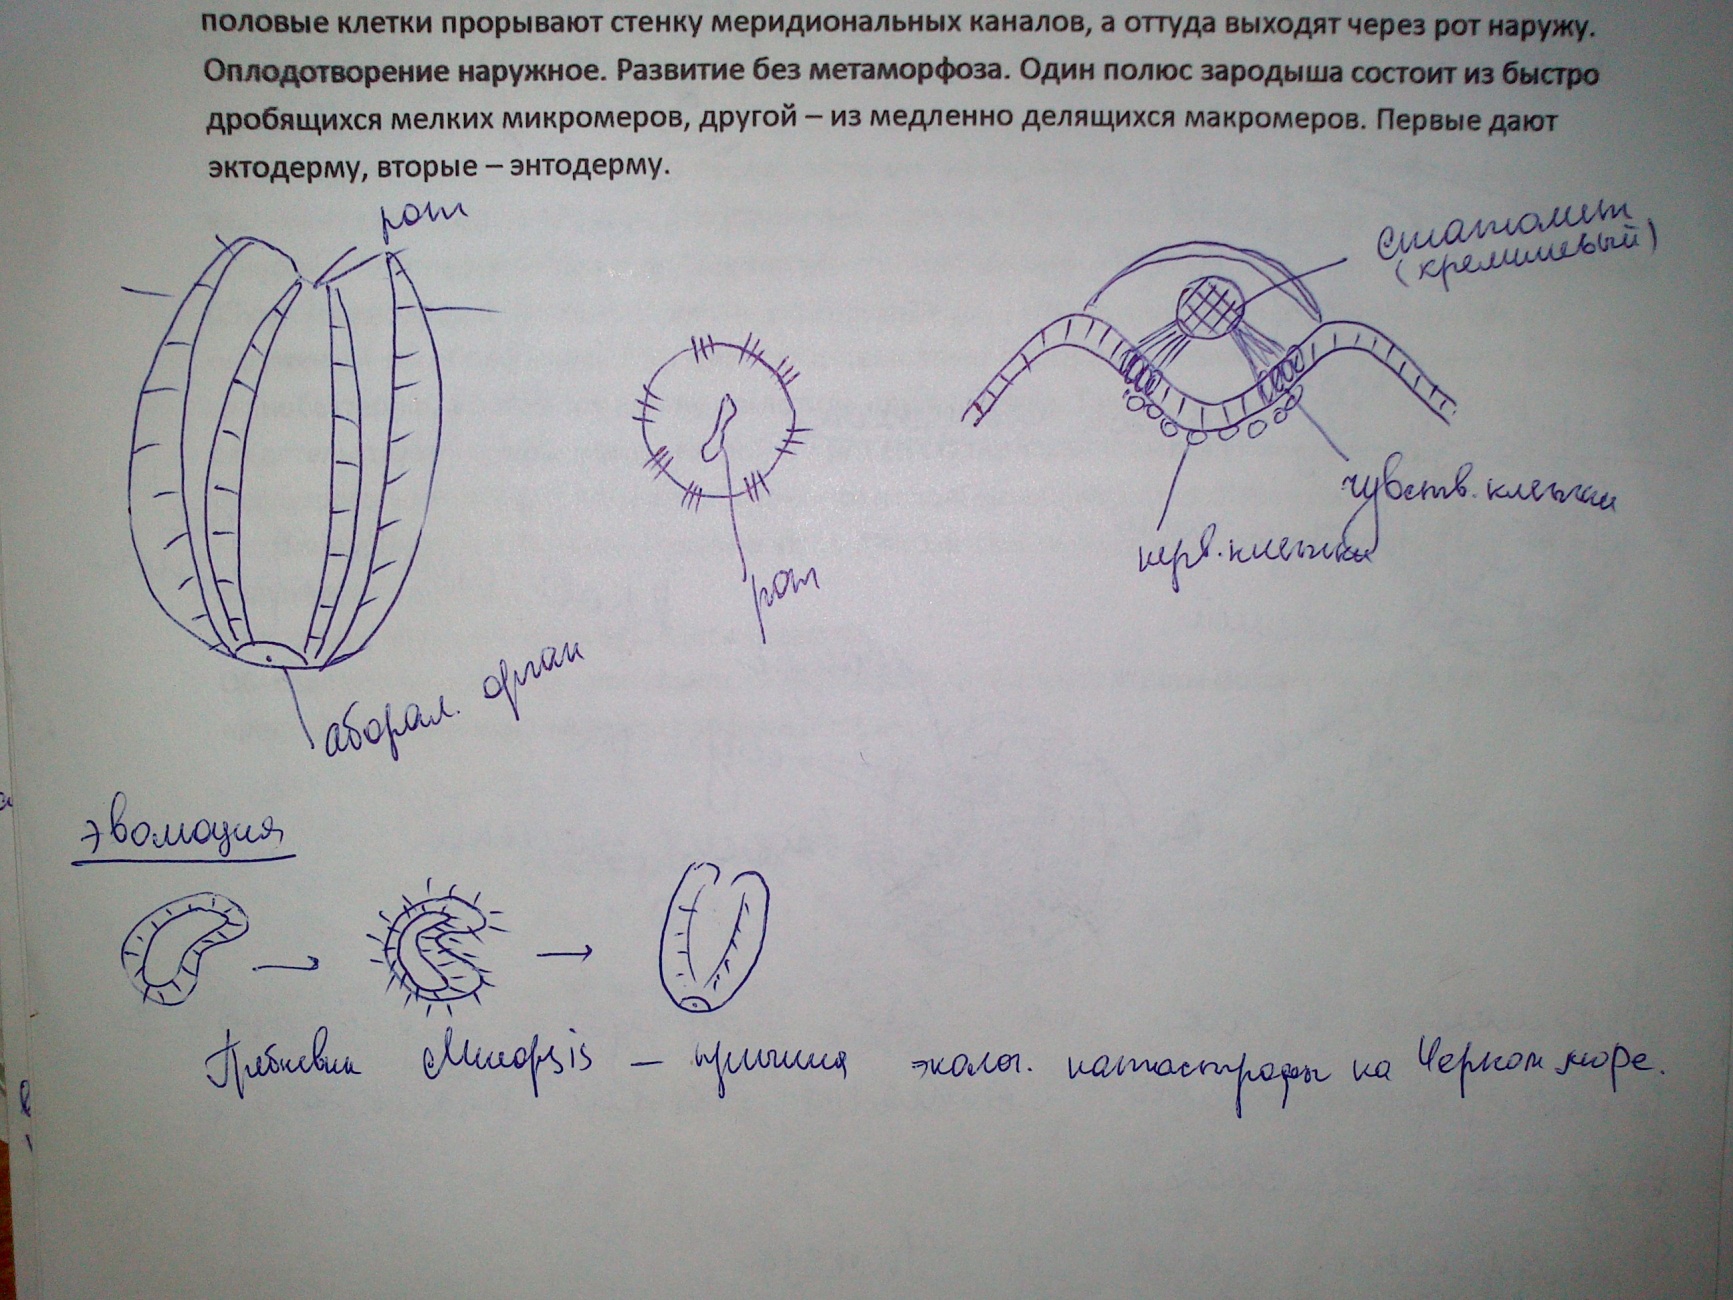 половые клетки прорывают стенку меридиональных каналов, а оттуда выходят через рот наружу.
Оплодотворение наружное. Развитие без метаморфоза. Один полюс зародыша состоит из быстро
дробящихся мелких микромеров, другой – из медленно делящихся макромеров. Первые дают
эктодерму, вторые – энтодерму.
рот
статолит
(кремниевый)
чувств. клетки
нерв. клетки
рот
аборал. орган
эволюция
Гребневик – причина эколог. катастрофы на Черном море.